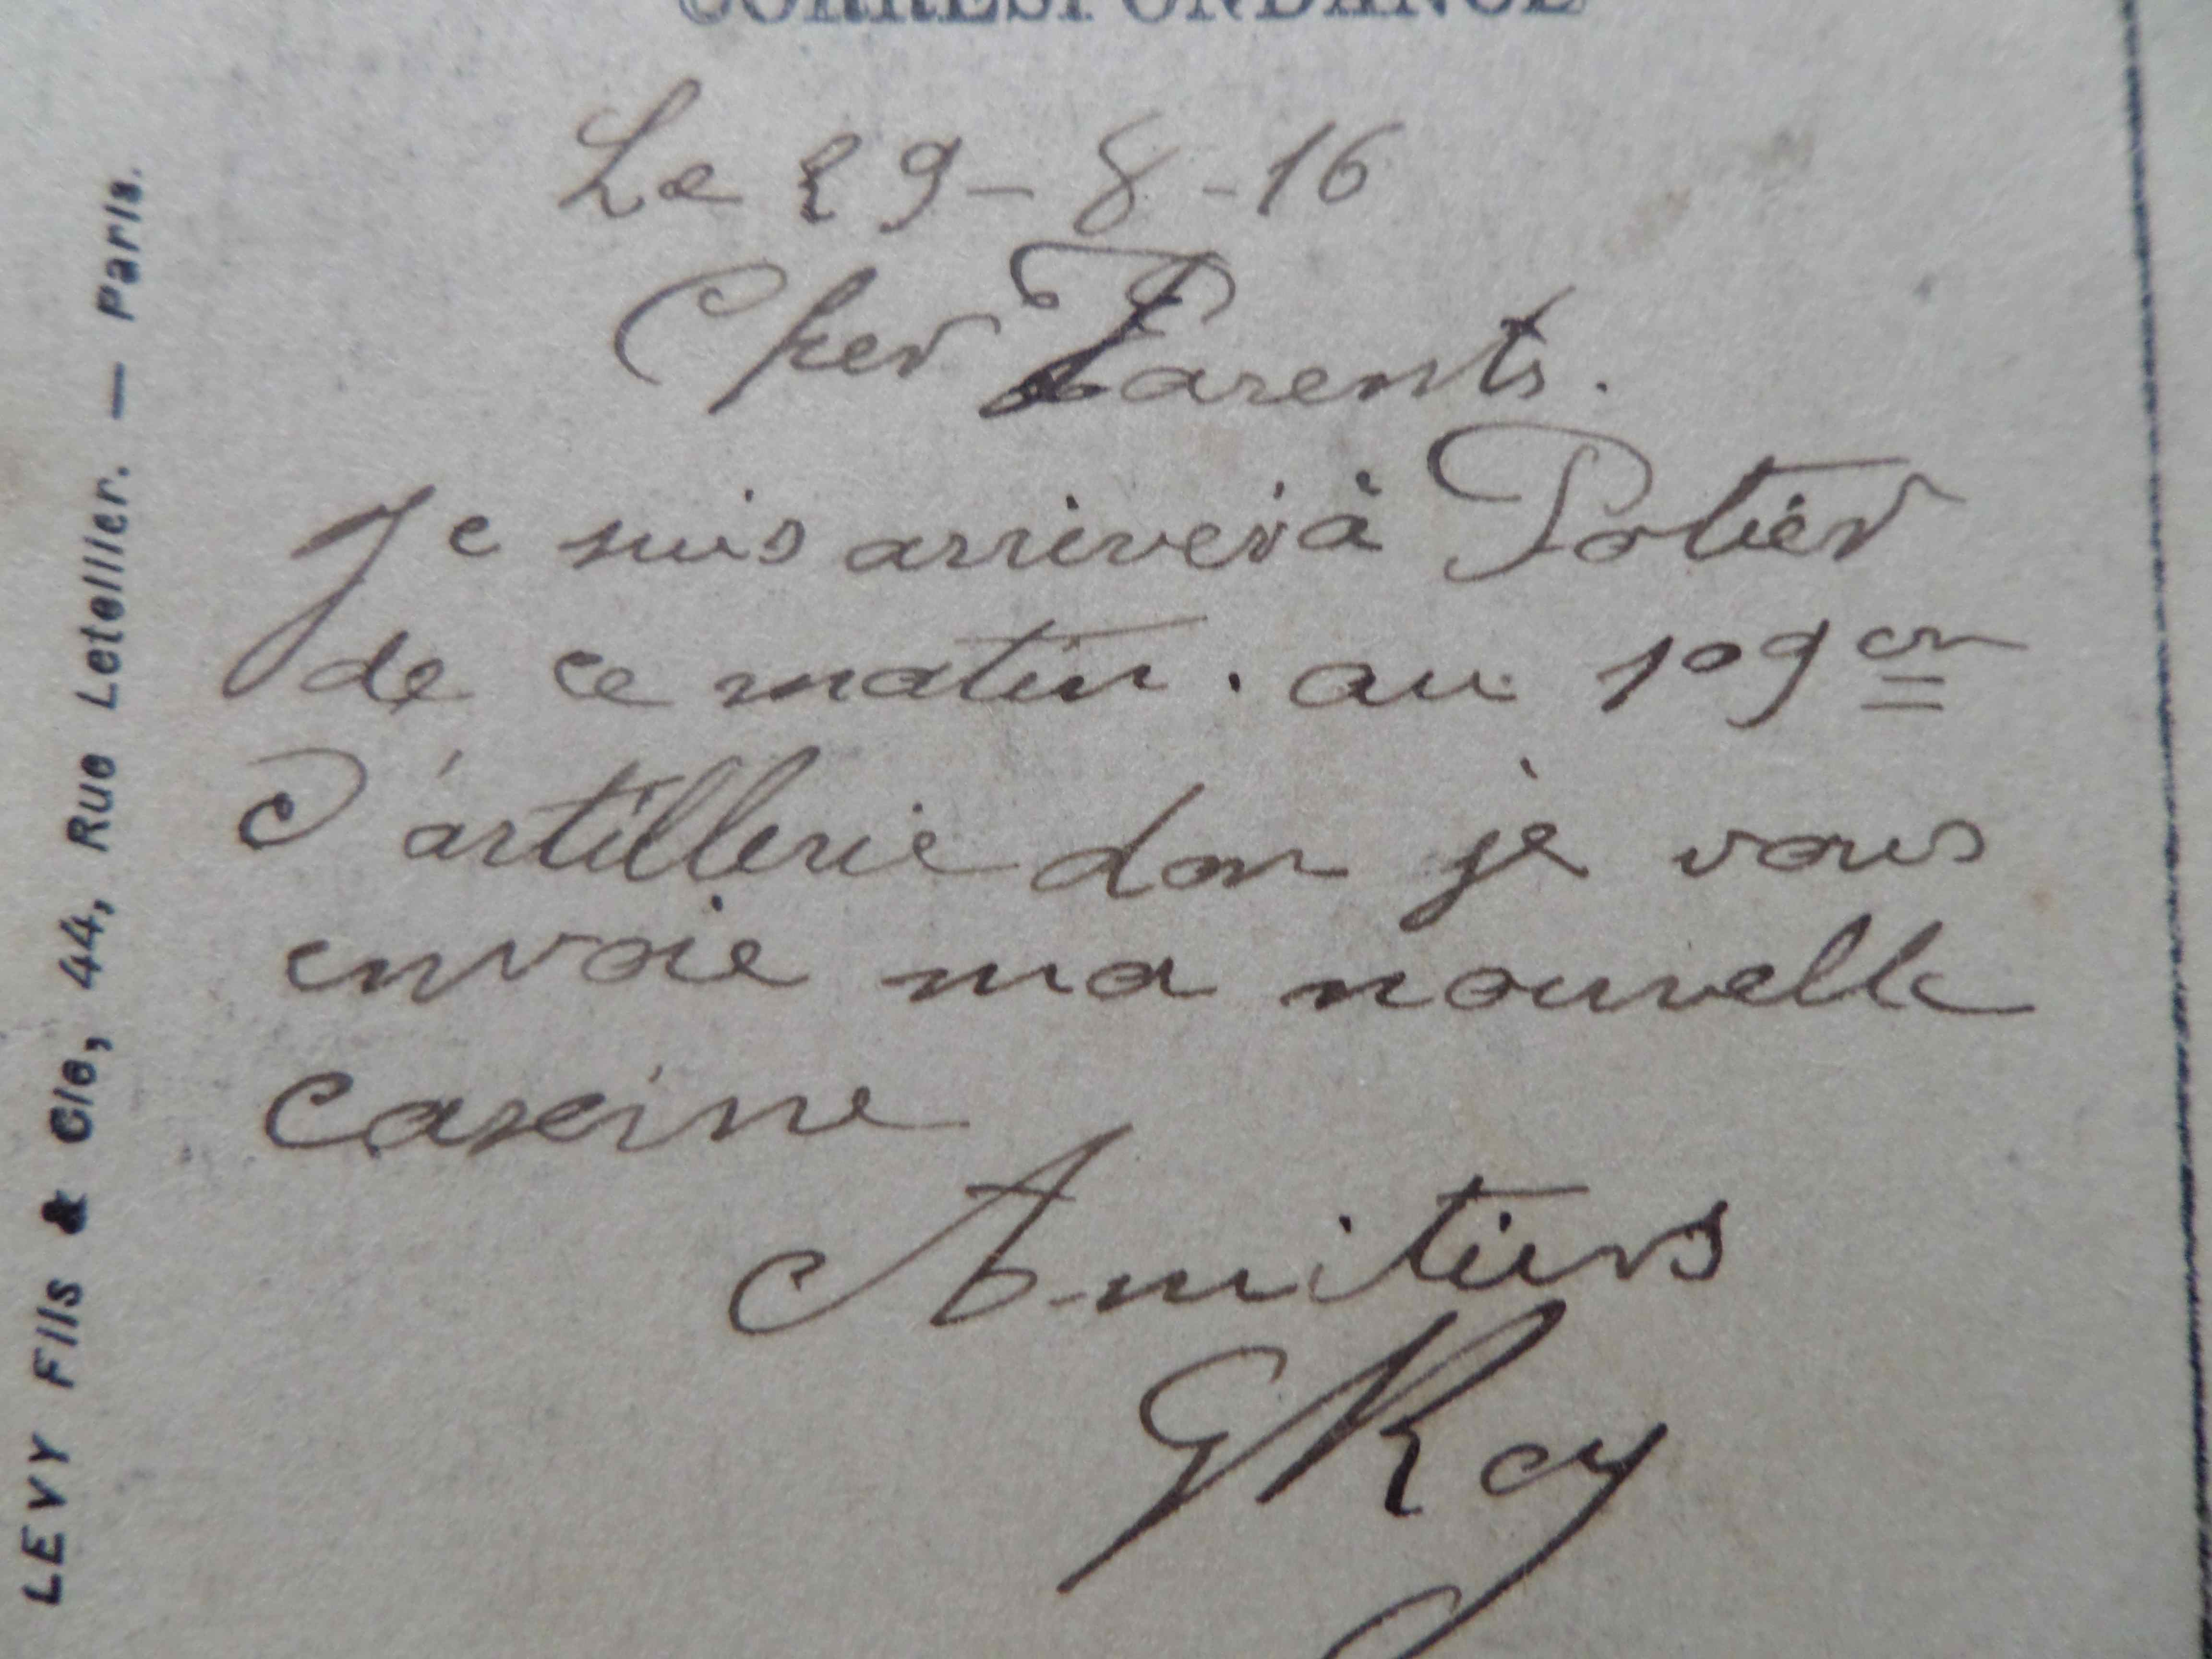 CORRESPONDANCE
Le 29-8-16
Cher Parents.
Je suis arriver à Potier
de ce matin. au 109em
d'artillerie don je vous
envoie ma nouvelle
caserne
Amitiers
G Roy
LEVY Fils & Cie, 44, Rue Letellier. — Paris.